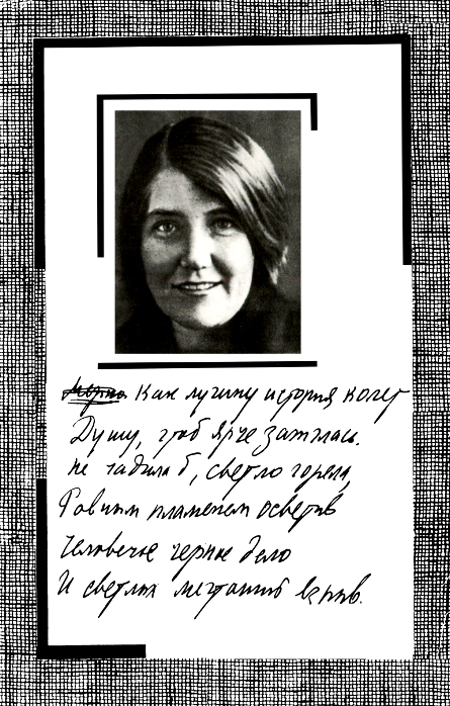 Как лучину история колет
Душу, чтоб ярче зажглась.
Не чадила б, светло горела,
Ровным пламенем осветив
Человечье черное дело
И светлых мечтаний взлив.